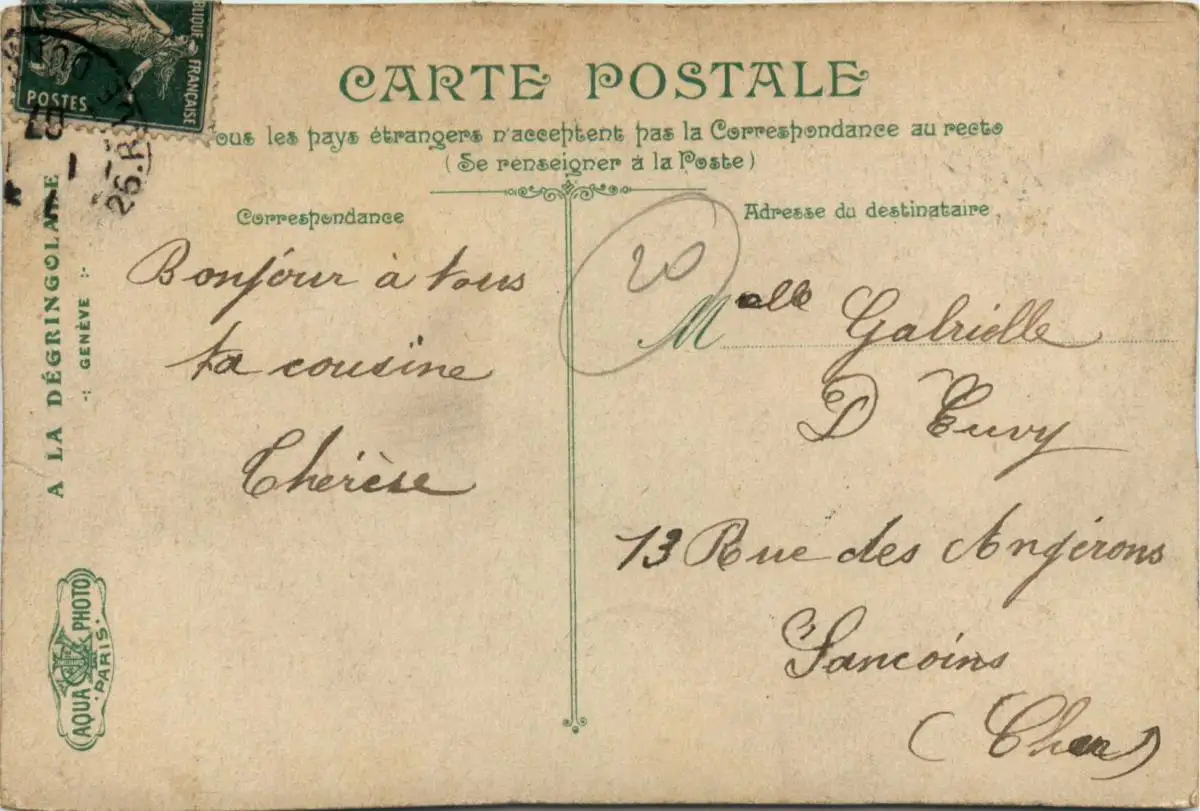 BLIQUE FRANÇAISE
POSTES
CARTE POSTALE
ous les pays étrangers n'acceptent pas la Correspondance au recto
(Se renseigner à la Poste)
Correspondance
Bonjour à tous
ta cousine
Thérèse
Adresse du destinataire
20
Melle Gabrielle
D Cuvy
13 Rue des Angérons
Sancoins
(Cher)
A LA DÉGRINGOLADE
-:- GENÈVE -:-
AQUA PHOTO
PARIS